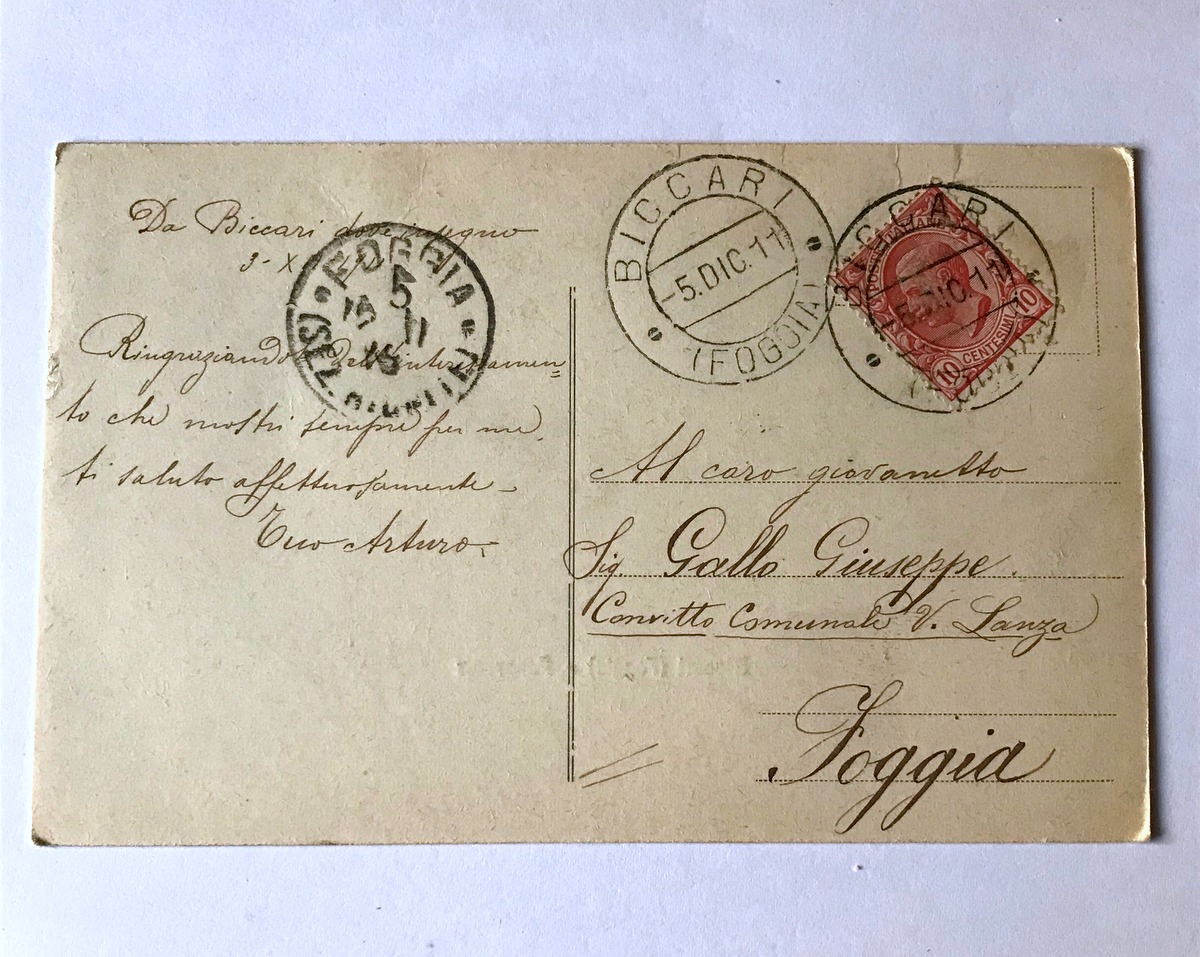 Da Biccari dove insegno
3- X
Ringraziando dell'interessamen=
to che mostri sempre per me,
ti saluto affettuosamente -
Tuo Arturo.
FOGGIA
5
11
BICCARI
-5.DIC.11
(FOGGIA)
BICCARI
5.DIC.11
POSTE ITALIANE
CENTESIMI
10
10
Al caro giovanetto
Sig. Gallo Giuseppe.
Convitto Comunale V. Lanza
Foggia